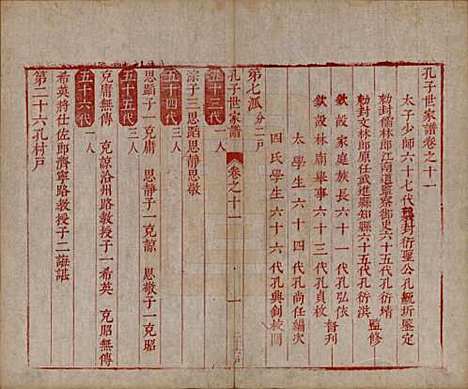 孔子世家譜卷之十一
太子少師六十七代襲封衍聖公孔毓圻鑒定
勅封儒林郎江南道監察御史六十五代孔衍
勅封文林郎原任武進縣知縣六十五代孔衍洪
監修
欽設家庭族長六十一代孔弘依
欽設林廟舉事六十三代孔貞枚
督刊
太學生六十四代孔尚任編次
四氏學生六十六代孔興釗校閱
第七派分二戶
孔子世家譜
卷之十一
一
五十三代一人
宗子三思蹈思靜思敬
五十四代三人
思蹈子一克庸 思靜子一克諒 思敬子一克昭
五十五代三人
克庸無傳 克諒洺州路教授子一希英 克昭無傳
五十六代一人
希英將仕佐郎濟寧路教授子二
第二十六孔村戶